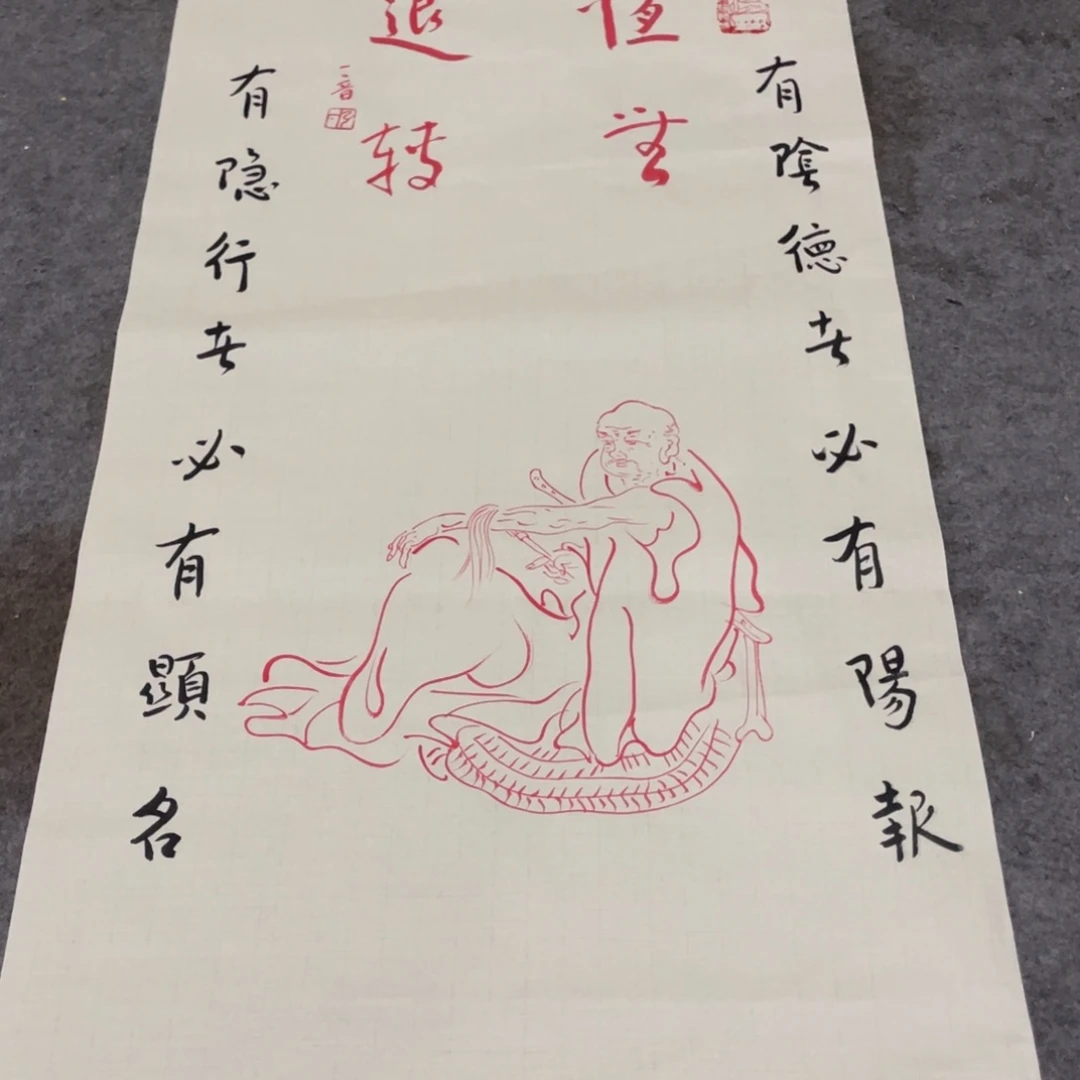 有陰德者必有陽報
恆無
退转
一音
有隐行者必有顯名